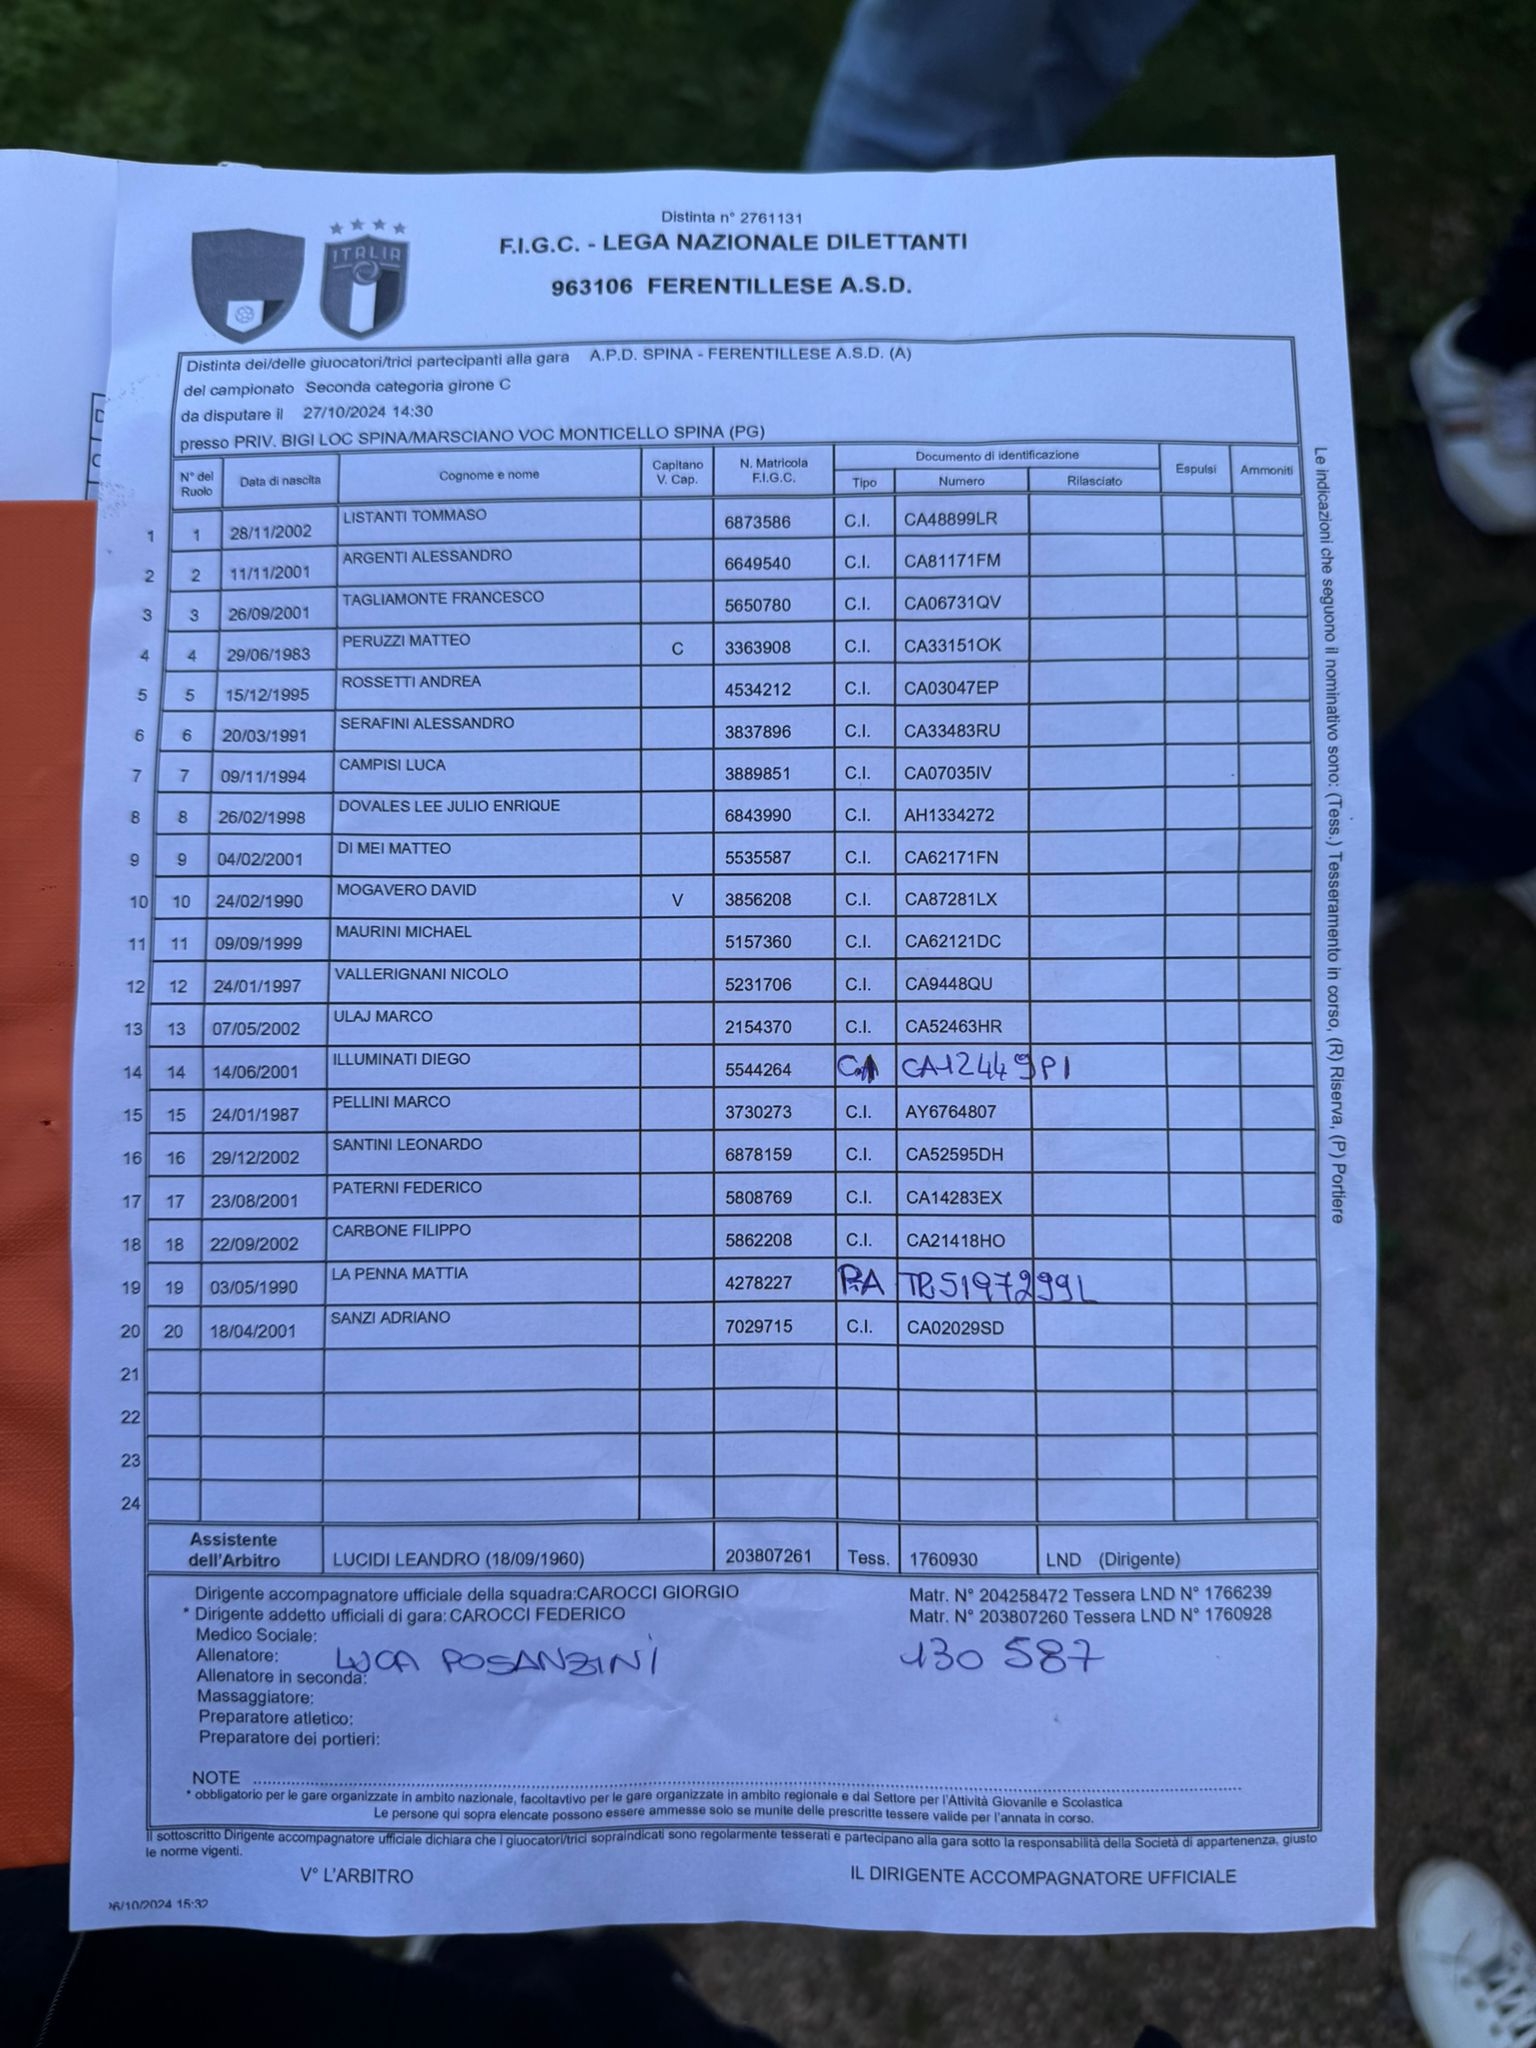 Distinta n° 2761131
F.I.G.C. - LEGA NAZIONALE DILETTANTI
963106 FERENTILLESE A.S.D.
ITALIA
Distinta dei/delle giuocatori/trici partecipanti alla gara A.P.D. SPINA - FERENTILLESE A.S.D. (A)
del campionato Seconda categoria girone C
da disputare il 27/10/2024 14:30
presso PRIV. BIGI LOC SPINA/MARSCIANO VOC MONTICELLO SPINA (PG)
N° del Ruolo Data di nascita Cognome e nome Capitano V. Cap. N. Matricola F.I.G.C. Documento di identificazione Tipo Numero Rilasciato Espulsi Ammoniti
1 1 28/11/2002 LISTANTI TOMMASO 6873586 C.I. CA48899LR
2 2 11/11/2001 ARGENTI ALESSANDRO 6649540 C.I. CA81171FM
3 3 26/09/2001 TAGLIAMONTE FRANCESCO 5650780 C.I. CA06731QV
4 4 29/06/1983 PERUZZI MATTEO C 3363908 C.I. CA33151OK
5 5 15/12/1995 ROSSETTI ANDREA 4534212 C.I. CA03047EP
6 6 20/03/1991 SERAFINI ALESSANDRO 3837896 C.I. CA33483RU
7 7 09/11/1994 CAMPISI LUCA 3889851 C.I. CA07035IV
8 8 26/02/1998 DOVALES LEE JULIO ENRIQUE 6843990 C.I. AH1334272
9 9 04/02/2001 DI MEI MATTEO 5535587 C.I. CA62171FN
10 10 24/02/1990 MOGAVERO DAVID V 3856208 C.I. CA87281LX
11 11 09/09/1999 MAURINI MICHAEL 5157360 C.I. CA62121DC
12 12 24/01/1997 VALLERIGNANI NICOLO 5231706 C.I. CA9448QU
13 13 07/05/2002 ULAJ MARCO 2154370 C.I. CA52463HR
14 14 14/06/2001 ILLUMINATI DIEGO 5544264 CA12449PI
15 15 24/01/1987 PELLINI MARCO 3730273 C.I. AY6764807
16 16 29/12/2002 SANTINI LEONARDO 6878159 C.I. CA52595DH
17 17 23/08/2001 PATERNI FEDERICO 5808769 C.I. CA14283EX
18 18 22/09/2002 CARBONE FILIPPO 5862208 C.I. CA21418HO
19 19 03/05/1990 LA PENNA MATTIA 4278227
20 20 18/04/2001 SANZI ADRIANO 7029715 C.I. CA02029SD
21
22
23
24
Assistente dell'Arbitro LUCIDI LEANDRO (18/09/1960) 203807261 Tess. 1760930 LND (Dirigente)
Dirigente accompagnatore ufficiale della squadra:CAROCCI GIORGIO Matr. N° 204258472 Tessera LND N° 1766239
* Dirigente addetto ufficiali di gara: CAROCCI FEDERICO Matr. N° 203807260 Tessera LND N° 1760928
Medico Sociale:
Allenatore: LUCA POSANZINI 130 587
Allenatore in seconda:
Massaggiatore:
Preparatore atletico:
Preparatore dei portieri:
NOTE
* obbligatorio per le gare organizzate in ambito nazionale, facoltavtivo per le gare organizzate in ambito regionale e dal Settore per l'Attività Giovanile e Scolastica
Le persone qui sopra elencate possono essere ammesse solo se munite delle prescritte tessere valide per l'annata in corso.
Il sottoscritto Dirigente accompagnatore ufficiale dichiara che i giuocatori/trici sopraindicati sono regolarmente tesserati e partecipano alla gara sotto la responsabilità della Società di appartenenza, giusto
le norme vigenti.
V° L'ARBITRO IL DIRIGENTE ACCOMPAGNATORE UFFICIALE
26/10/2024 15:32
Le indicazioni che seguono il nominativo sono: (Tess.) Tesseramento in corso, (R) Riserva, (P) Portiere